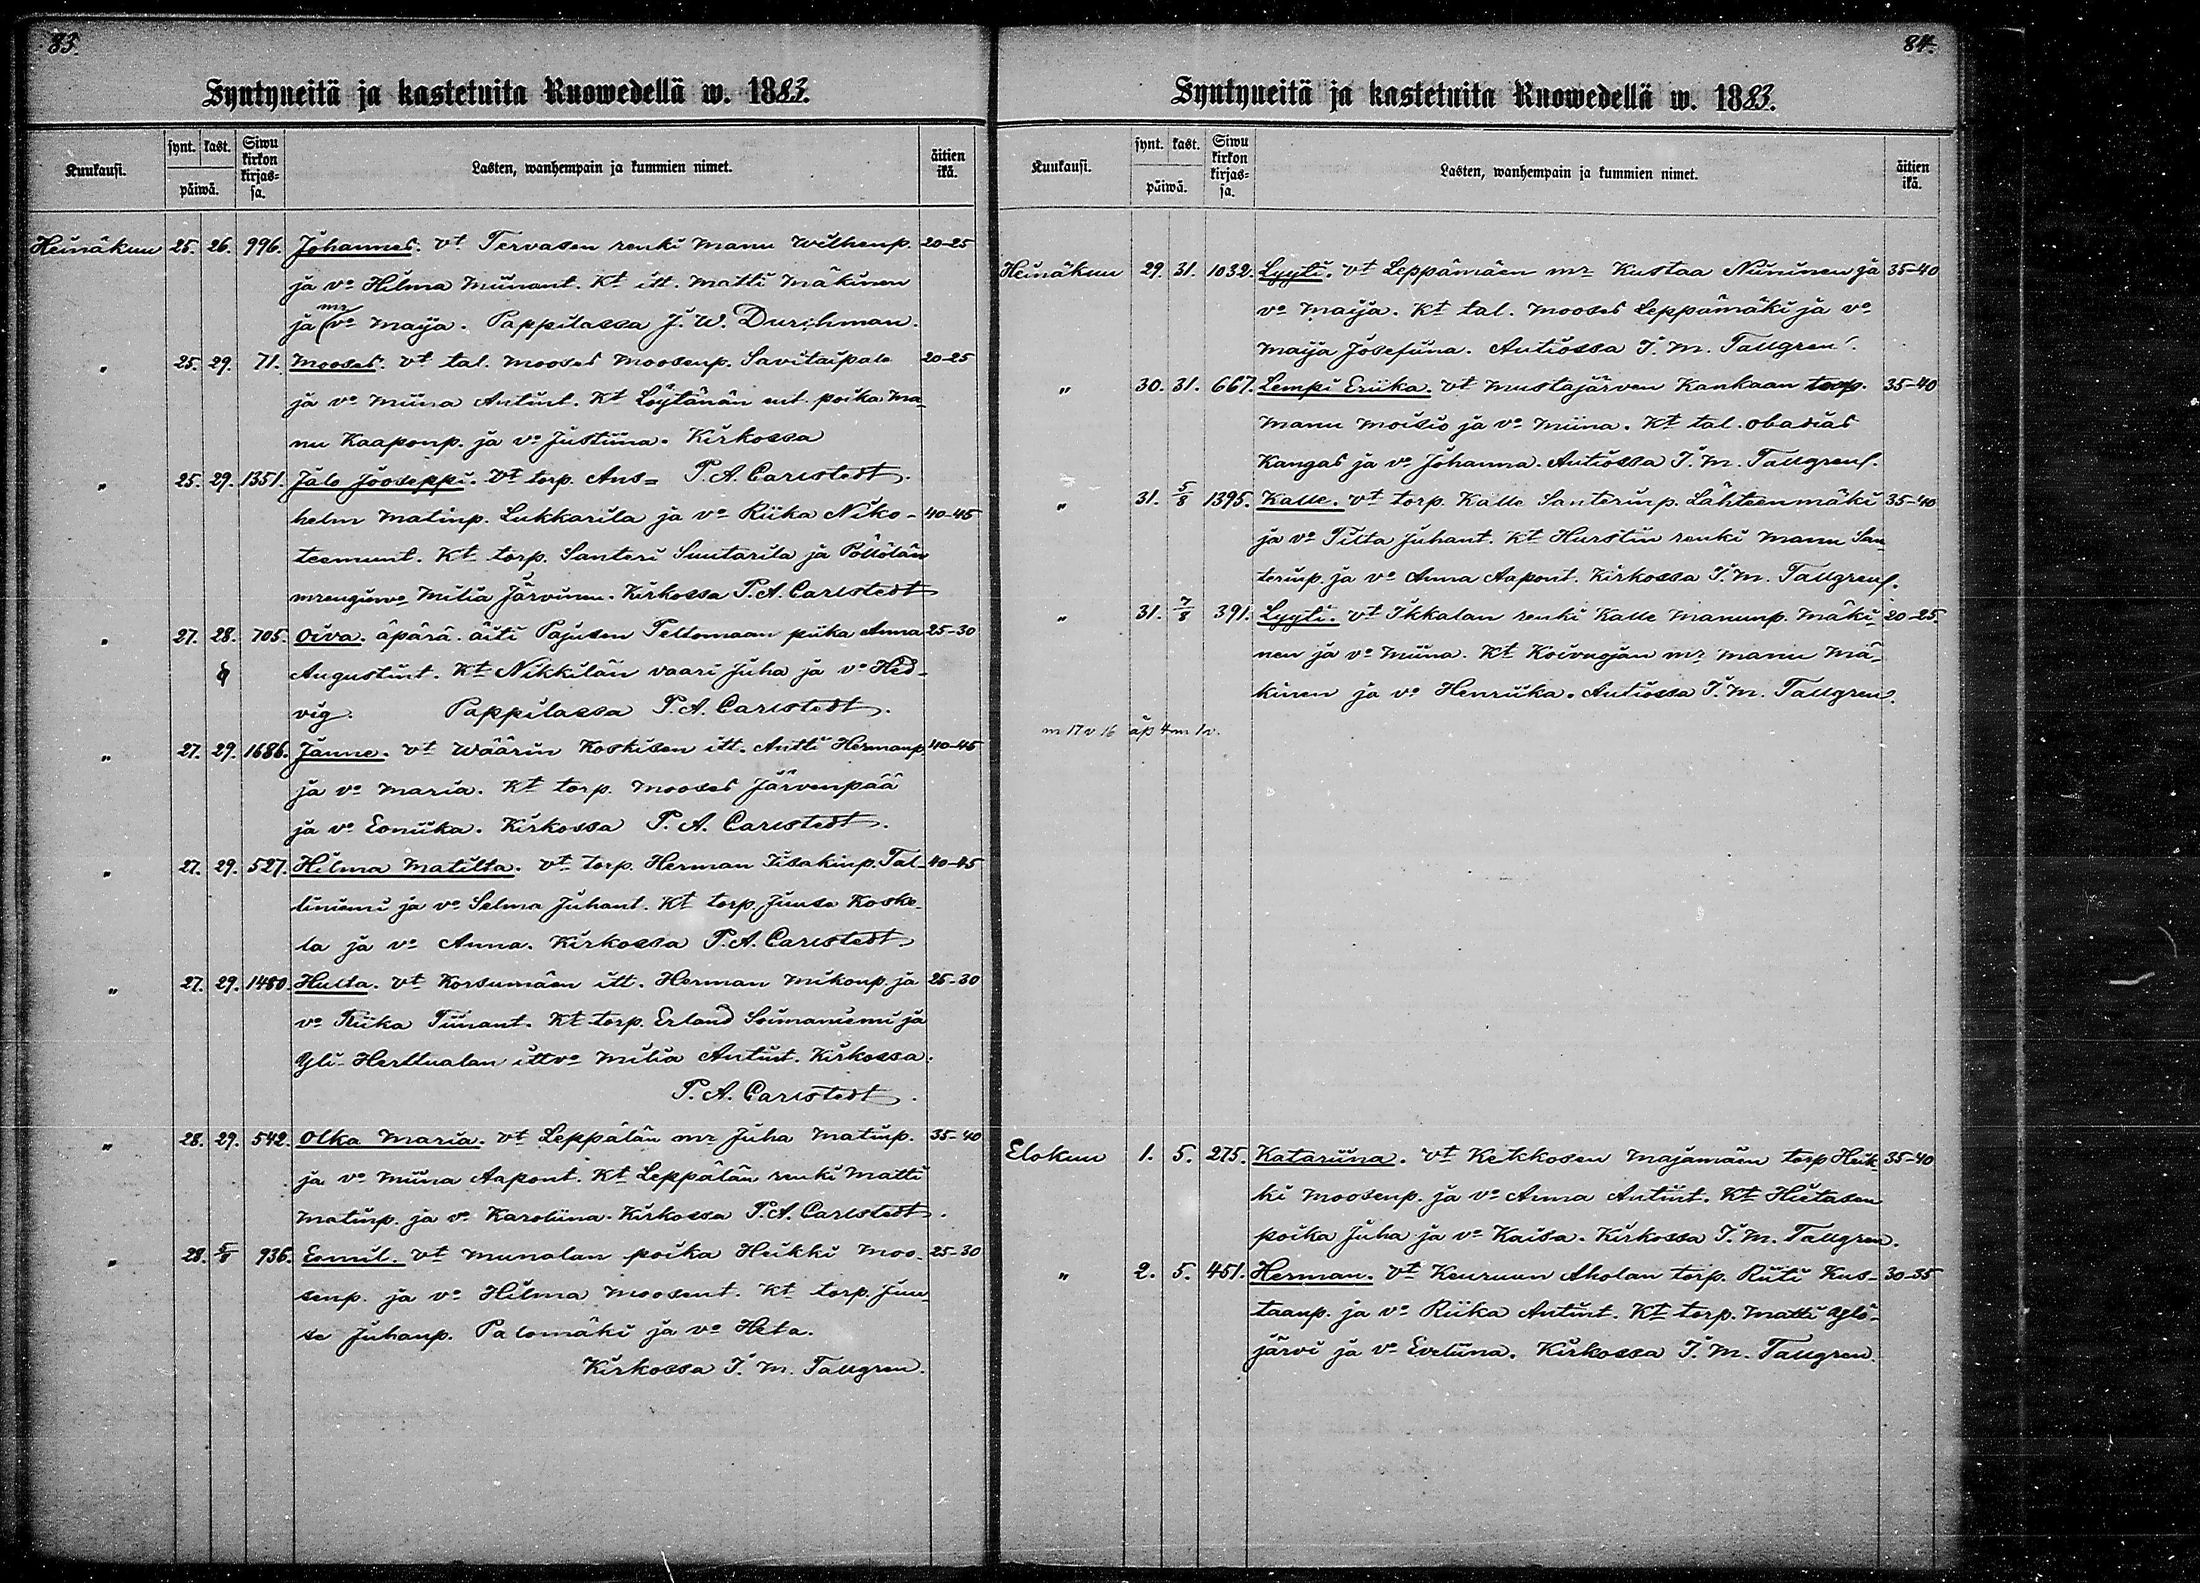 83.
Syntyneitä ja kastetuita Ruowedellä w. 1883.
Kuukausi. synt. kast. päiwä. Siwu kirkon kirjas= sa. Lasten, wanhempain ja kummien nimet. äitien ikä.
Heinäkuu 25. 26. 996. Johannes. Vt Tervasen renki Manu Wilhenp. 20-25
ja vo Hilma Miinant. Kt itt. Matti Mäkinen
mr
ja vo Maija. Pappilassa J. W. Durchman.
" 25. 29. 71. Mooses. Vt tal. Mooses Moosenp. Savitaipale 20-25
ja vo Miina Antint. Kt Löytänän ent. poika Ma-
nu Kaaponp. ja vo Justiina. Kirkossa
" 25. 29. 1351. Jalo Jooseppi. Vt torp. Ans= P. A. Carlstedt.
helm Matinp. Lukkarila ja vo Riika Niko- 40-45
teemunt. Kt torp. Santeri Suutarila ja Pöllölän
mrenginvo Milia Järvinen. Kirkossa P. A. Carlstedt
" 27. 28. 705. Oiva. äpärä. äiti Pajusen Peltomaan piika Anna 25-30
Augustint. Kt Nikkilän vaari Juha ja vo Hed-
vig. Pappilassa P. A. Carlstedt.
" 27. 29. 1686. Janne. Vt Wäärin Koskisen itt. Antti Hermanp. 40-45
ja vo Maria. Kt torp. Mooses Järvenpää
ja vo Eeniika. Kirkossa P. A. Carlstedt.
" 27. 29. 527. Hilma Matilta. Vt torp. Herman Iisakinp. Tal- 40-45
liniemi ja vo Selma Juhant. Kt torp. Juuse Koske-
la ja vo Anna. Kirkossa P. A. Carlstedt.
" 27. 29. 1480. Hulta. Vt Korsumäen itt. Herman Mikonp. ja 25-30
vo Riika Tiinant. Kt torp. Erland Soimaniemi ja
Yli-Herttualan ittvo Milia Antint. Kirkossa.
P. A. Carlstedt.
" 28. 29. 542. Olka Maria. Vt Leppälän mr Juha Matinp. 35-40
ja vo Miina Aapont. Kt Leppälän renki Matti
Matinp. ja vo Karoliina. Kirkossa P. A. Carlstedt.
" 28. 5/8 936. Eemil. Vt Munalan poika Heikki Moo- 25-30
senp. ja vo Hilma Moosent. Kt torp. Juu-
se Juhanp. Palomäki ja vo Heta.
Kirkossa I. M. Tallgren.
84.
Syntyneitä ja kastetuita Ruowedellä w. 1883.
Kuukausi. synt. kast. päiwä. Siwu kirkon kirjas= sa. Lasten, wanhempain ja kummien nimet. äitien ikä.
Heinäkuu 29. 31. 1032. Lyyti. Vt Leppämäen mr Kustaa Niininen ja 35-40
vo Maija. Kt tal. Mooses Leppämäki ja vo
Maija Josefiina. Antiossa I. M. Tallgren.
" 30. 31. 667. Lempi Eriika. Vt Mustajärven Kankaan torp. 35-40
Manu Moisio ja vo Miina. Kt tal. Obadias
Kangas ja vo Johanna. Antiossa I. M. Tallgren.
" 31. 5/8 1395. Kalle. Vt torp. Kalle Santerinp. Lähteenmäki 35-40
ja vo Tilta Juhant. Kt Hurstin renki Manu San-
terinp. ja vo Anna Aapont. Kirkossa I. M. Tallgren.
" 31. 7/8 391. Lyyti. Vt Ikkalan renki Kalle Manunp. Mäki- 20-25.
nen ja vo Miina. Kt Koivuojan mr Manu Mä-
kinen ja vo Henriika. Antiossa I. M. Tallgren.
m 17 v 16 äp 4 m 1 v.
Elokuu 1. 5. 275. Katariina. Vt Kekkosen Majamäen torp Heik 35-40
ki Moosenp. ja vo Anna Antint. Kt Hietasen
poika Juha ja vo Kaisa. Kirkossa I. M. Tallgren.
" 2. 5. 451. Herman. Vt Keuruun Aholan torp. Riiti Kus- 30-35
taanp. ja vo Riika Antint. Kt torp. Matti Ylö-
järvi ja vo Eveliina. Kirkossa I. M. Tallgren.